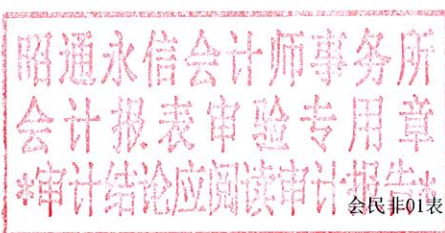 昭通永信会计师事务所
会计报表审验专用章
*审计结论应阅读审计报告*
会民非01表